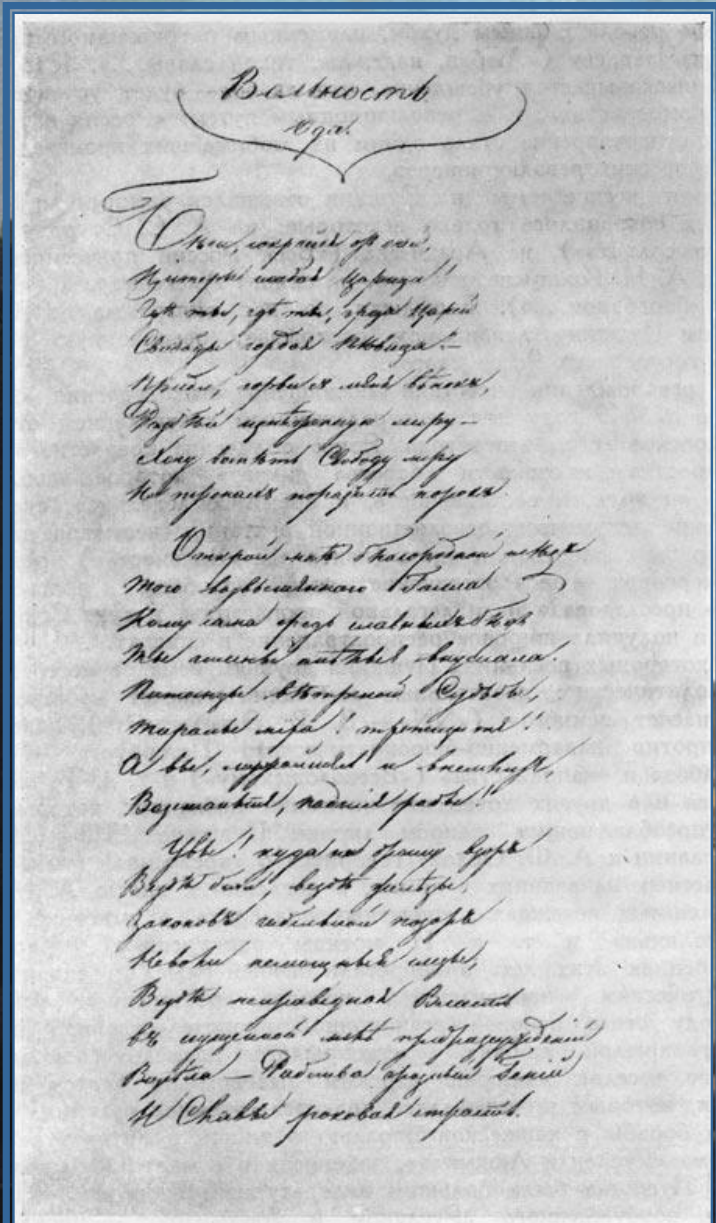 Вольность.
Ода.
Бѣги, сокройся отъ очей,
Цитеры слабая Царица!
Гдѣ ты, гдѣ ты, гроза Царей
Свободы гордая Пѣвица? —
Приди, сорви съ меня вѣнокъ,
Разбей изнѣженную лиру —
Хочу воспѣть Свободу міру
На тронахъ поразить порокъ.
Открой мнѣ благородной слѣдъ
Того возвышеннаго Галла
Кому сама средь славныхъ бѣдъ
Ты гимны смѣлыя внушала,
Питомцы вѣтреной Судьбы,
Тираны міра! трепещите!
А вы, мужайтеся и внемлите,
Возстаньте, падшіе рабы!
Увы! куда ни брошу взоръ
Вездѣ бичи, вездѣ желѣзы
Законовъ гибельной позоръ
Неволи немощныя слезы,
Вездѣ неправедная Власть
Въ сгущенной мглѣ предразсужденій
Возсѣла — Рабства грозный Геній
И Славы роковая страсть.